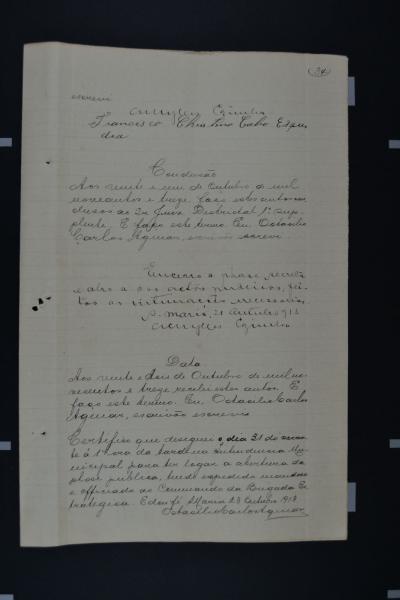 24
escrevi
Francisco Christino Cabo Espin
dea
Conclusão
Aos vinte e um de Outubro de mil
novecentos e treze faço estes autos con
clusos ao Sr. Juiz Districtal 1º Sup
plente. E faço este termo. Eu, Octacilio
Carlos Aguiar, escrivão escrevi
Encerro a phase secreta
e abro a dos actos publicos, fei
tas as intimações necessarias.
S. Maria, 21 outubro 913
Data
Aos vinte e dois de Outubro de mil no
vecentos e treze recebi estes autos. E
faço este termo. Eu, Octacilio Carlos
Aguiar, escrivão escrevi
Certifico que designei o dia 31 do corren
te á 1 hora da tarde na Intendencia Mu
nicipal para ter logar a abertura da
phase publica, tendo expedido mandado
e officiado ao Commando da Brigada Es
trategica. E dou fé. S. Maria 23 Outubro 1913
Octacilio Carlos Aguiar